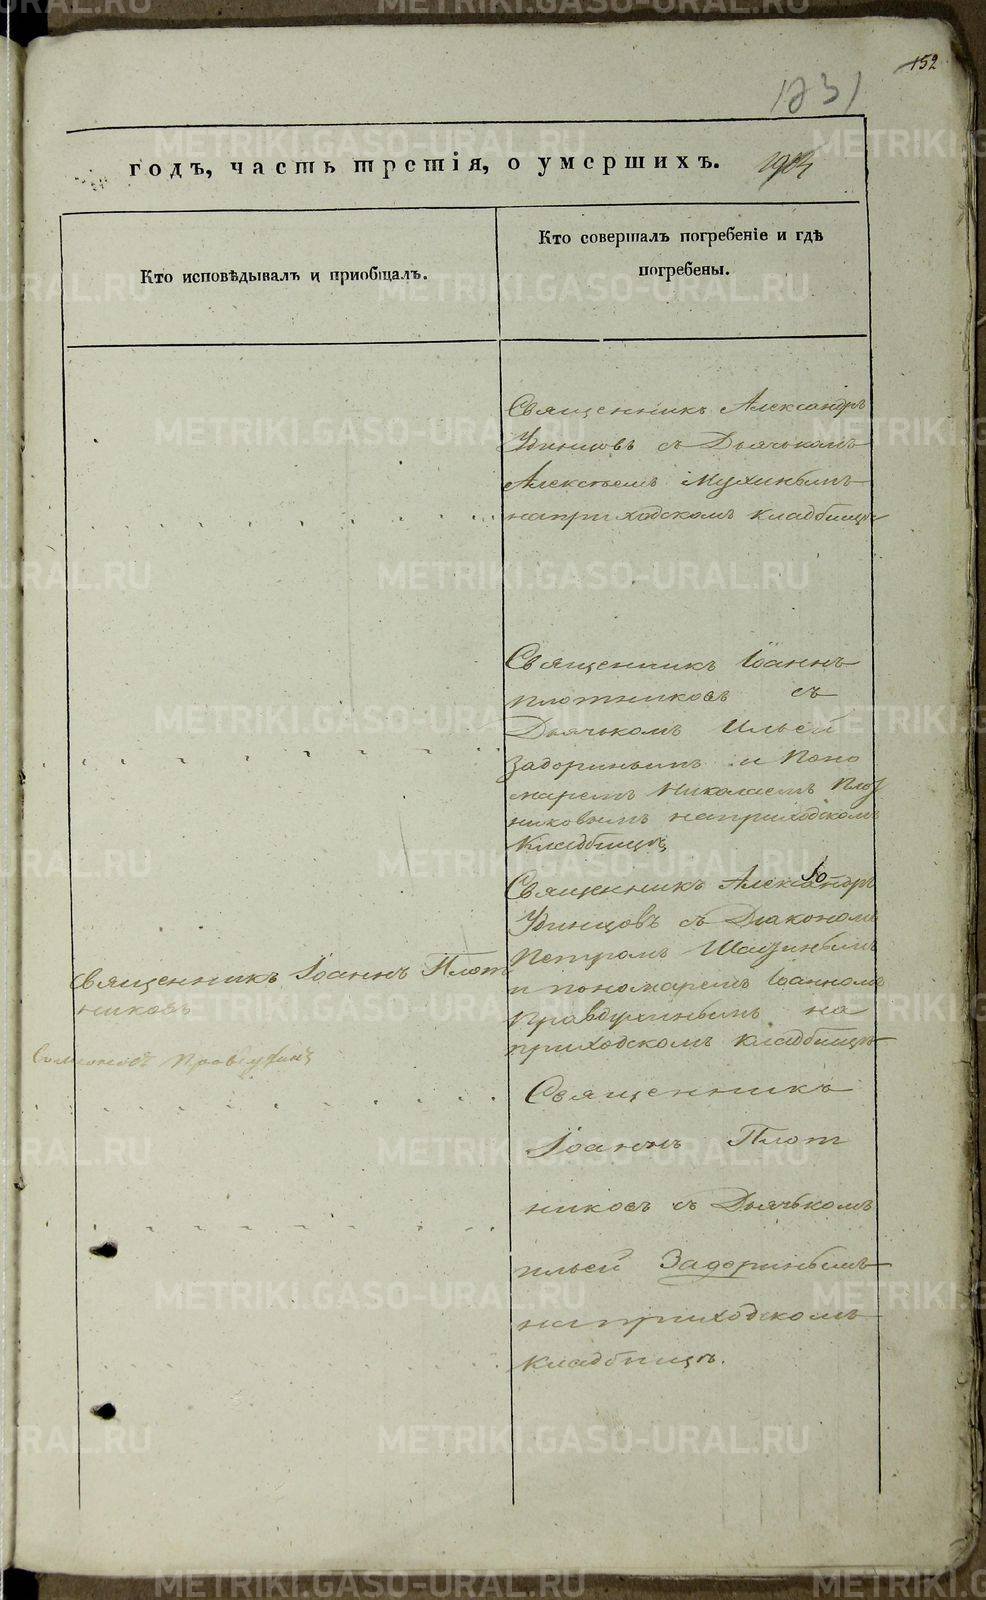 152
1231
годъ, часть третія, о умершихъ.
Кто исповѣдывалъ и пріобщалъ.
Кто совершалъ погребеніе и гдѣ
погребены.
Священникъ Александръ
Удинцовъ съ Дьячькомъ
Алексѣемъ Мухинымъ
наприходскомъ кладбищѣ
Священникъ Іоаннъ
Плотниковъ съ
Дьячькомъ Ильей
Задоринымъ и Поно
маремъ Николаемъ Плот
никовымъ наприходскомъ
Кладбищѣ
Священникъ Александръ
Удинцовъ съ Діакономъ
Петромъ
и пономаремъ Іоанномъ
Правдухинымъ на
приходскомъ кладбищѣ
Священникъ Іоаннъ Плот
никовъ
Священникъ
Іоаннъ Плот
никовъ съ Дьячькомъ
Ильей Задоринымъ
наприходскомъ
кладбищѣ.
METRIKI.GASO-URAL.RU